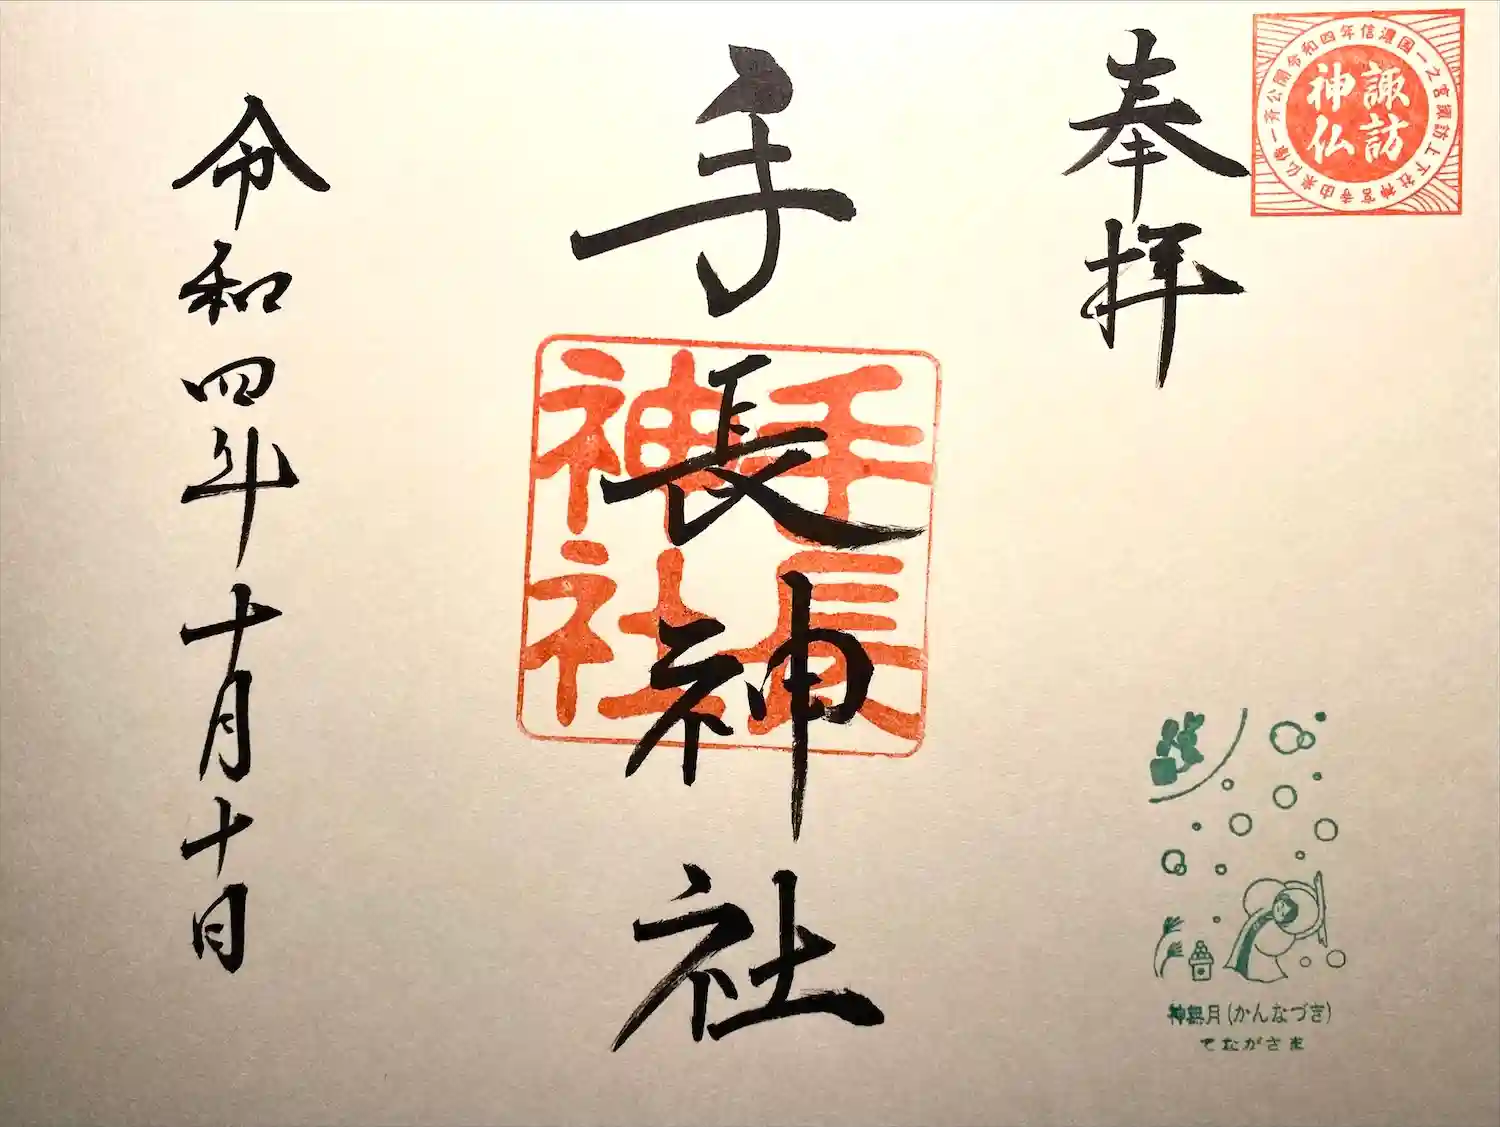 奉拝
諏訪
神仏
令和四年信濃國一之宮諏訪上下社神宮寺由来仏像一斉公開
手長神社
手長
神社
令和四年十月十日
神無月(かんなづき)
てながさま